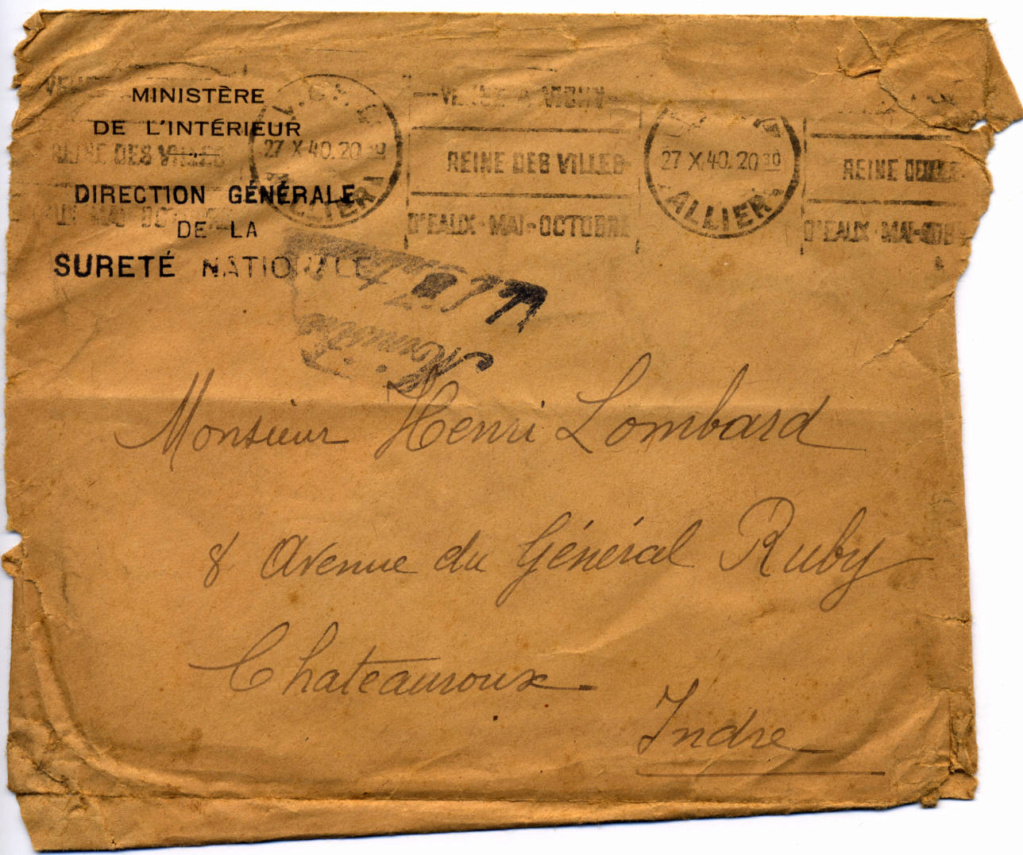 MINISTÈRE
DE L'INTÉRIEUR
DIRECTION GÉNÉRALE
DE LA
SURETÉ NATIONALE
REINE DES VILLES
27 X 40. 20 30
ALLIER
VENEZ A VICHY
REINE DES VILLES
D'EAUX · MAI-OCTOBRE
27 X 40. 20 30
ALLIER
REINE
D'EAUX · MAI-
Monsieur Henri Lombard
8 Avenue du Général Ruby
Chateauroux
Indre